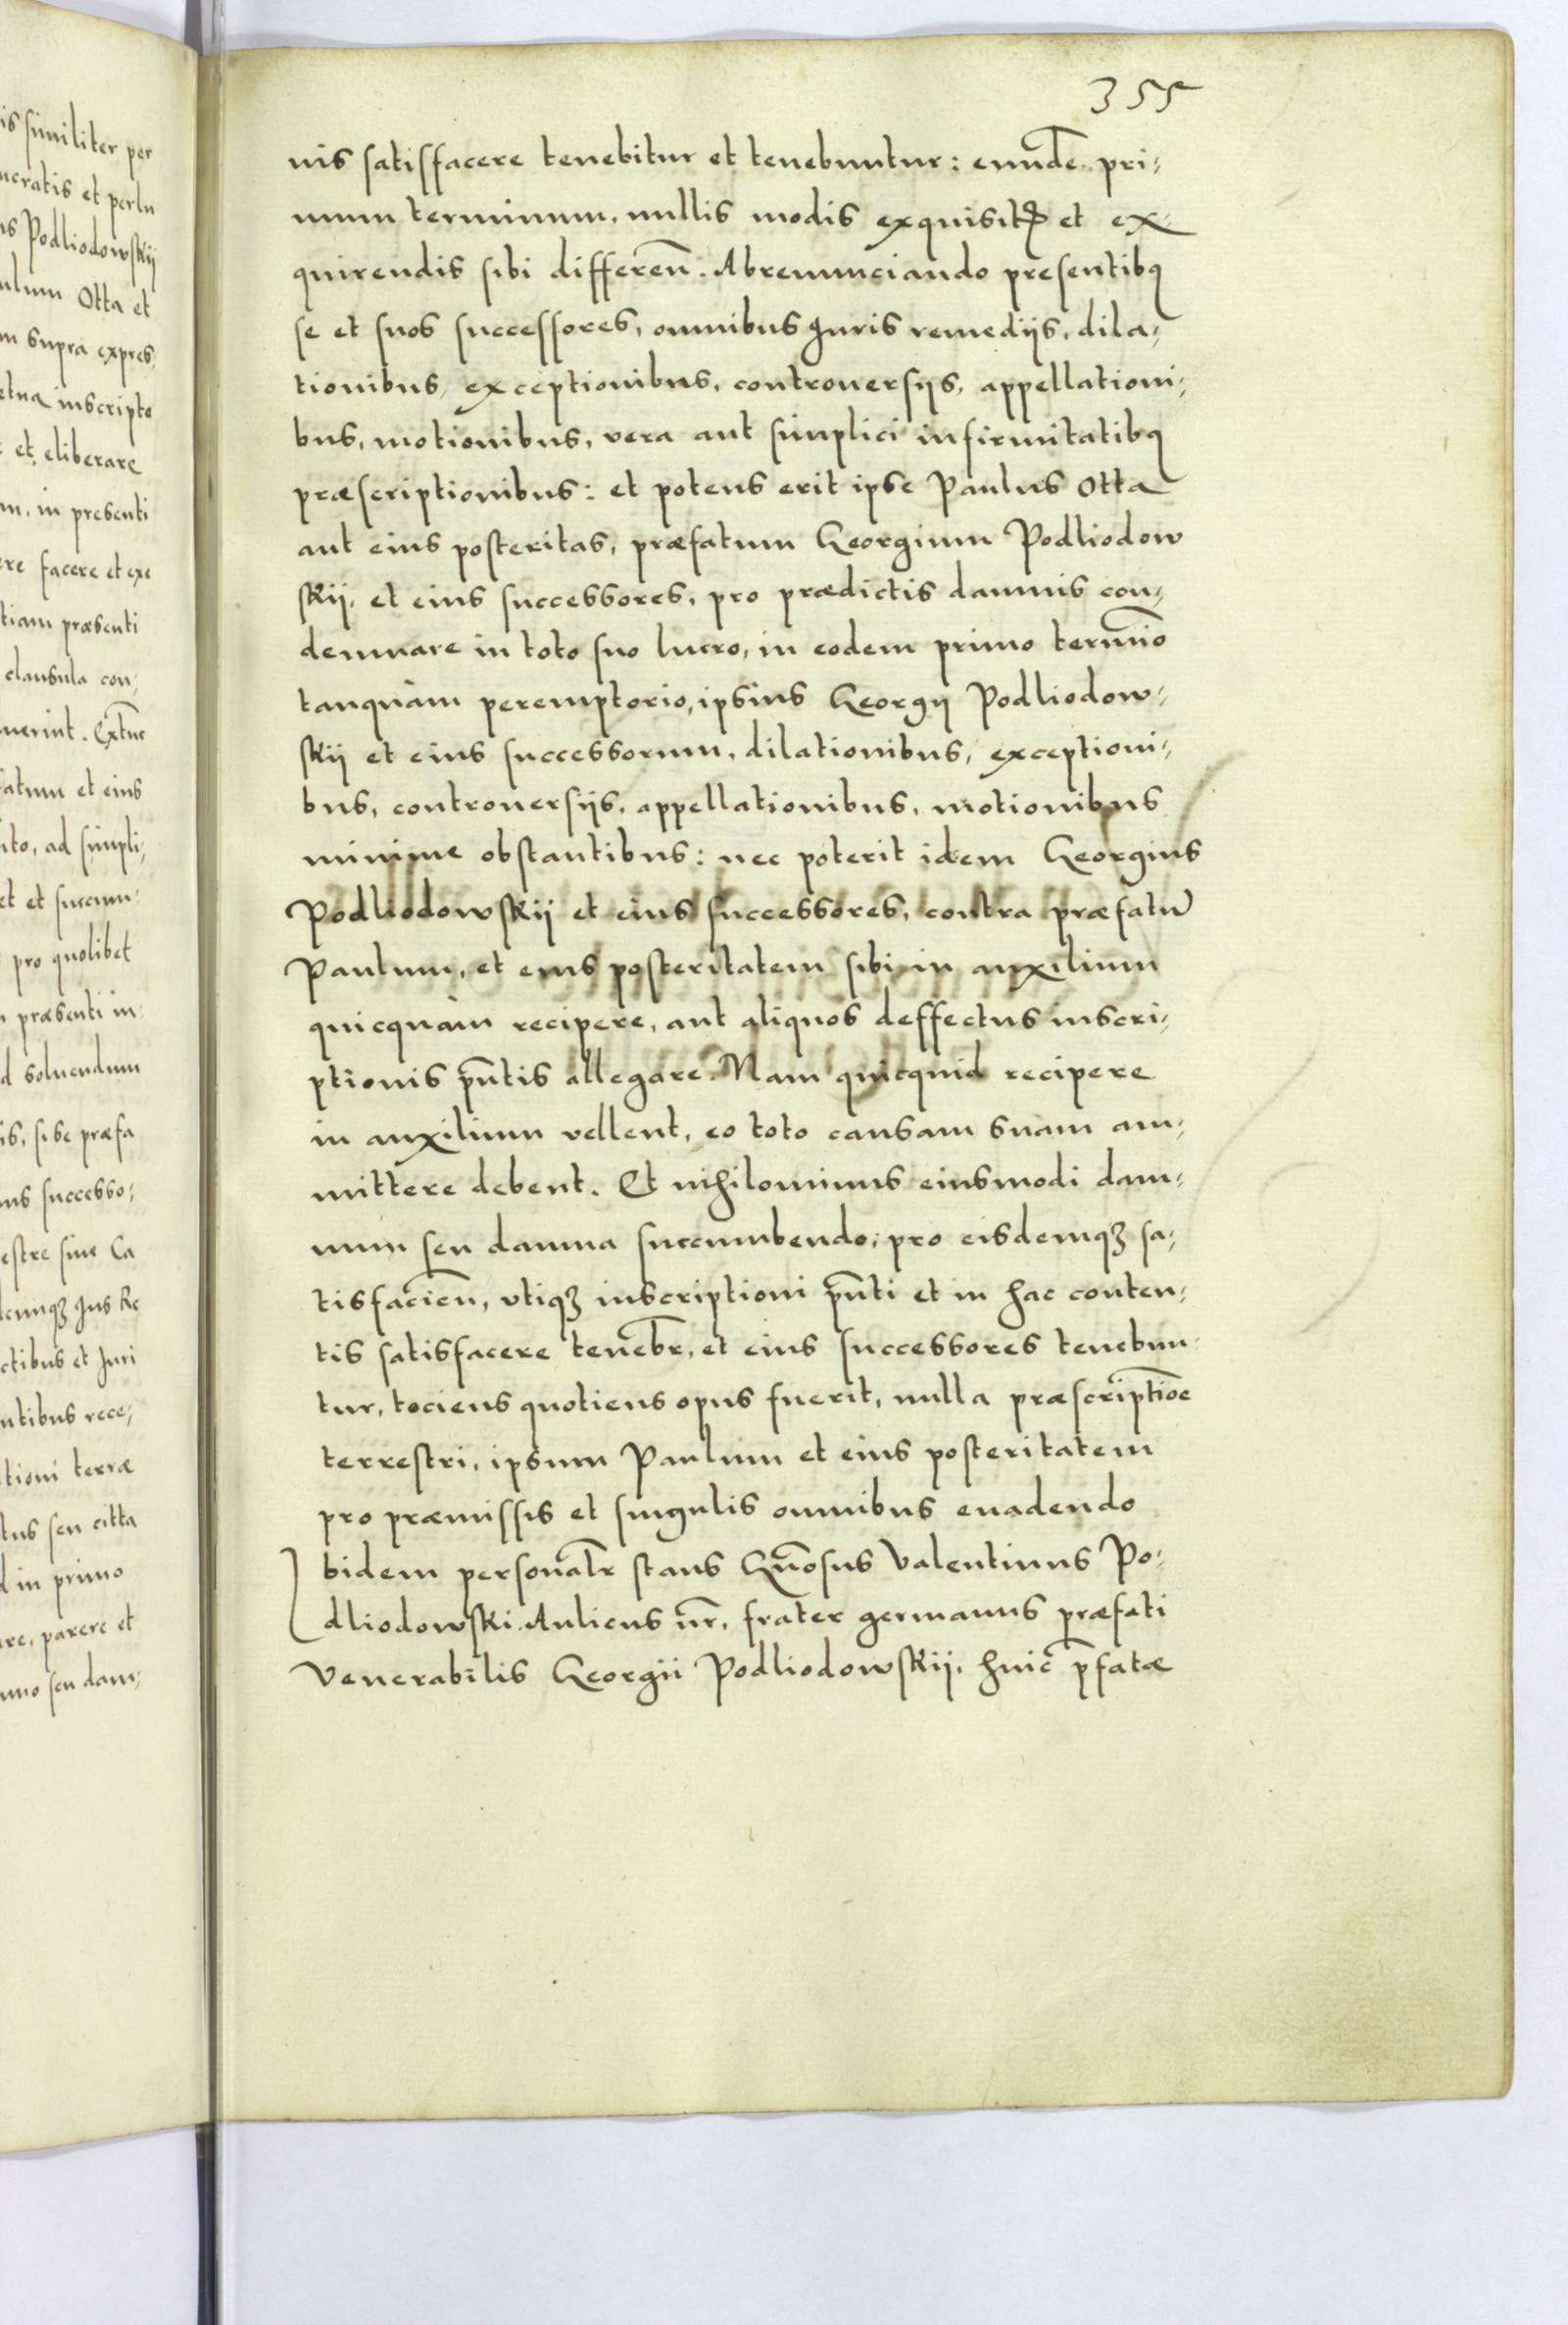 355
is similiter per
ucratis et perlu
us Podliodowskij
ulum Otta et
m supra expres
etua inscripto
et eliberare
m, in presenti
ere facere et exe
tiam præsenti
clausula con,
uerint. Extūc
fatum et eius
to, ad simpli,
et et succum
pro quolibet
præsenti in
d soluendum
is, sibe præfa
ius successo,
estre siue Ca
demqȝ Jus Re
ctibus et Juri
ntibus rece,
tioni terræ
tus seu citta
d in primo
re, parere et
mno seu dam,
nis satisfacere tenebitur et tenebuntur: eunde pri,
mum terminum, nullis modis exquisitꝭ et ex
quirendis sibi differen̄. Abrenunciando presentibꝫ
se et suos successores, omnibus Juris remedijs, dila,
tionibus, exceptionibus, controuersijs, appellationi,
bus, motionibus, vera aut simplici infirmitatibꝫ
præscriptionibus: et potens erit ipse Paulus Otta
aut eius posteritas, præfatum Georgium Podliodow
skij, et eius successores, pro prædictis damnis con,
demnare in toto suo lucro, in eodem primo termīo
tanquàm peremptorio, ipsius Georgij Podliodow,
skij et eius successorum, dilationibus, exceptioni,
bus, controuersijs, appellationibus, motionibus
minime obstantibus: nec poterit idem Georgius
Podliodowskij et eius successores, contra præfatū
Paulum, et eius posteritatem sibi in auxilium
quicquàm recipere, aut aliquos deffectus inscri,
ptionis p̄ntis allegare. Nam quicquid recipere
in auxilium vellent, eo toto causam suam am,
mittere debent. Et nihilominus eiusmodi dam,
num seu damna succumbendo, pro eisdemqȝ sa,
tisfacien̄, vtiqȝ inscriptioni p̄nti et in hac conten,
tis satisfacere teneb̄r, et eius successores tenebun
tur, tociens quotiens opus fuerit, nulla præscriptiōe
terrestri, ipsum Paulum et eius posteritatem
pro præmissis et singulis omnibus euadendo
bidem personalr̄ stans Gn̄osus Valentinus Po,
dliodowski Aulicus nr̄, frater germanus præfati
Venerabilis Georgii Podliodowskij, huic p̄fatæ